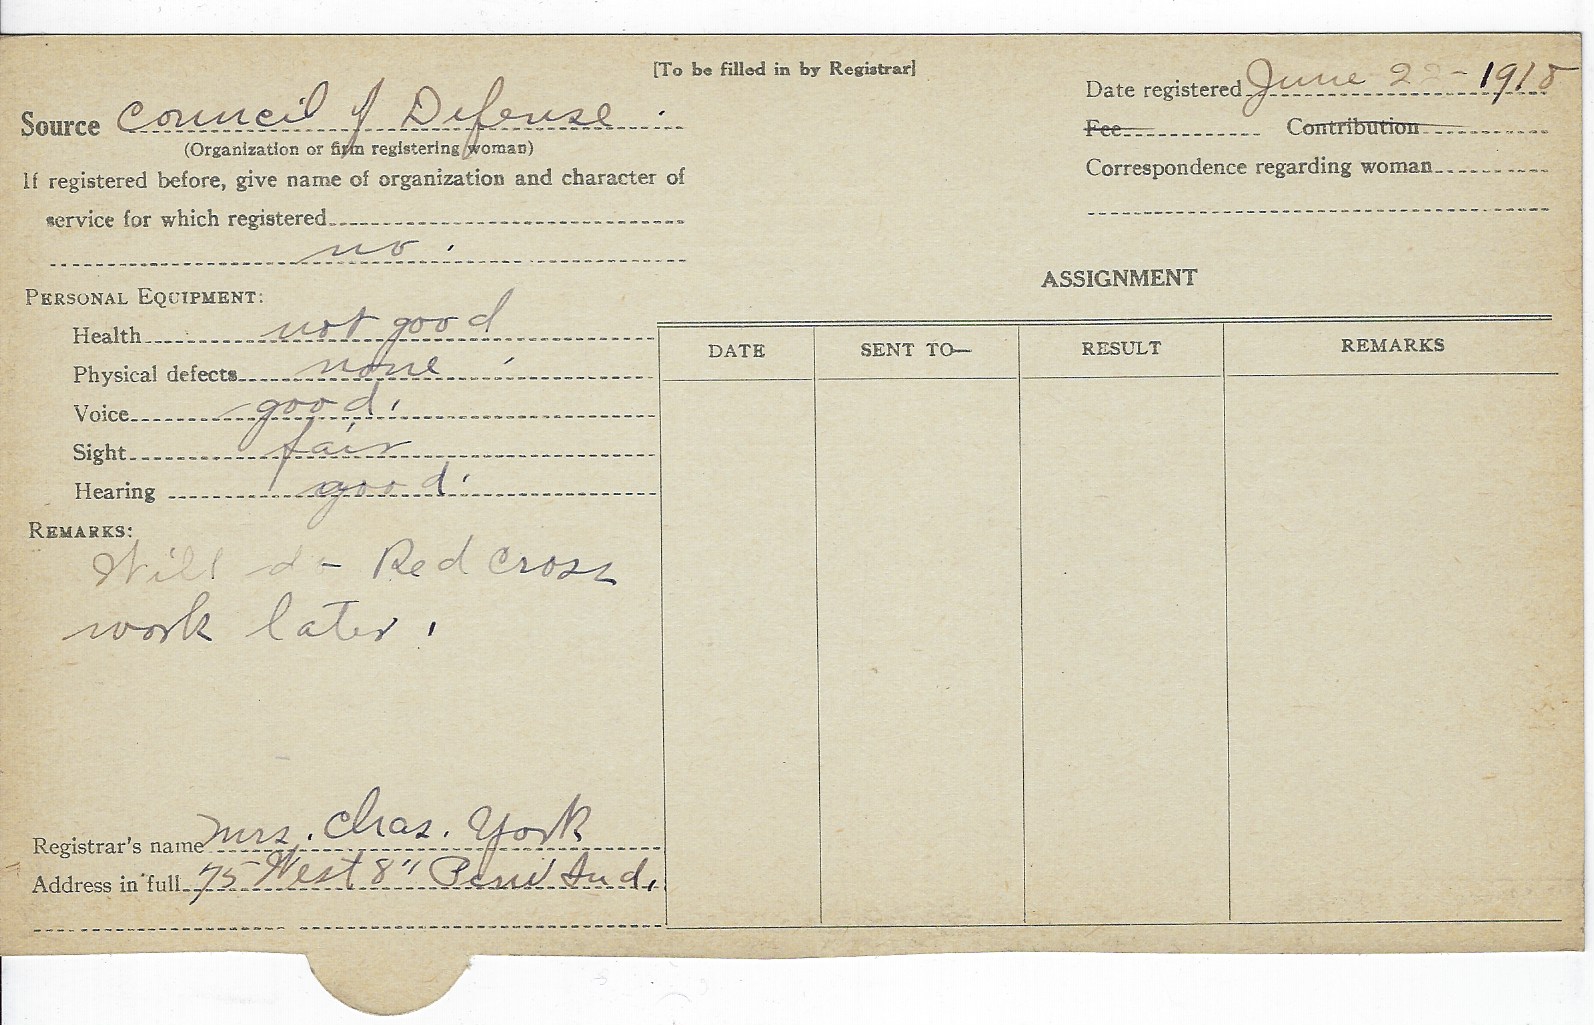 [To be filled in by Registrar]
Source Council of Defense.
(Organization or firm registering woman)
If registered before, give name of organization and character of
service for which registered
no.
PERSONAL EQUIPMENT:
Health not good
Physical defects none.
Voice good.
Sight fair
Hearing good.
REMARKS:
Will do Red Cross
work later.
Registrar's name Mrs. Chas. York
Address in full 75 West 8" Peru Ind.
Date registered June 22-1918
Fee Contribution
Correspondence regarding woman
ASSIGNMENT
DATE SENT TO— RESULT REMARKS